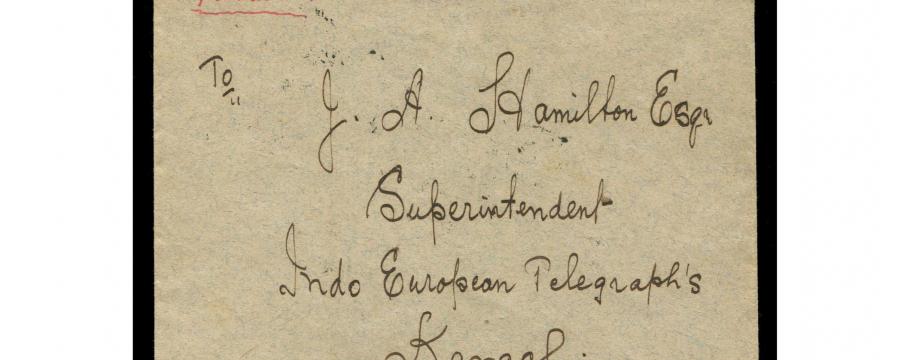 To
J. A. Hamilton Esqr
Superintendent
Indo European Telegraph's